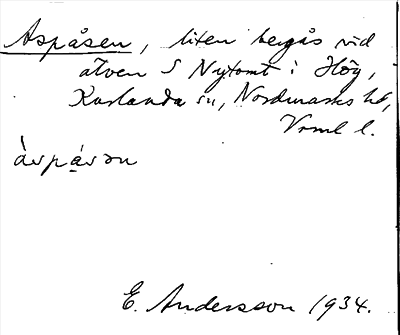 Aspåsen, liten bergås vid
älven S Nytomt i Hög,
Karlanda sn, Nordmarks hd,
Vrml l.
àspåsən
E. Andersson 1934.